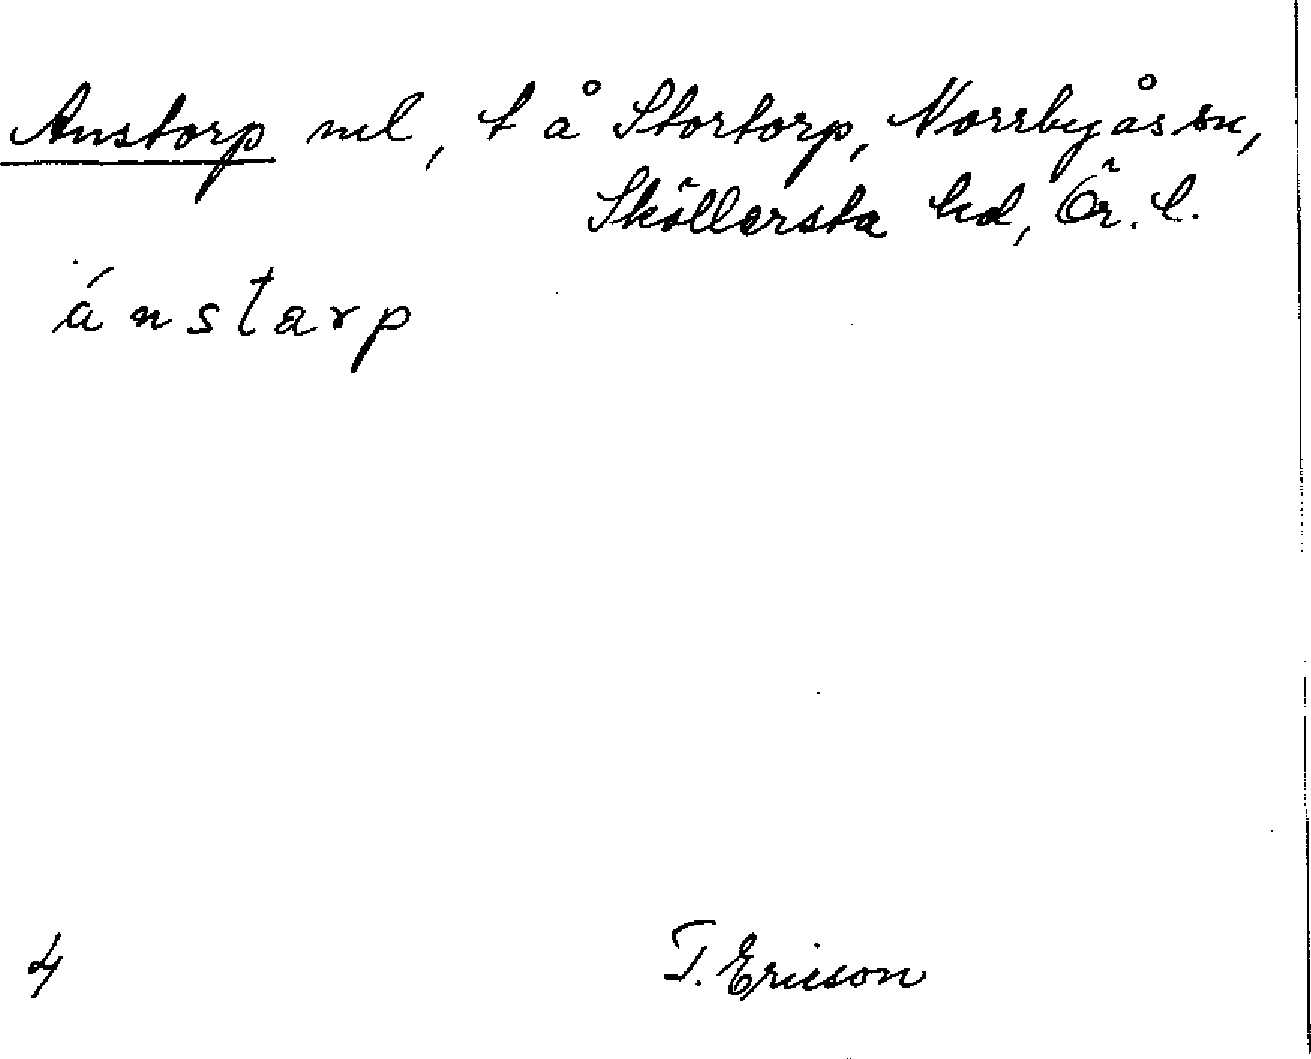 Anstorp nel, t å Stortorp, Norrbyås sn,
Sköllersta hd, Ör. l.
ánstarp
4
T. Ericson